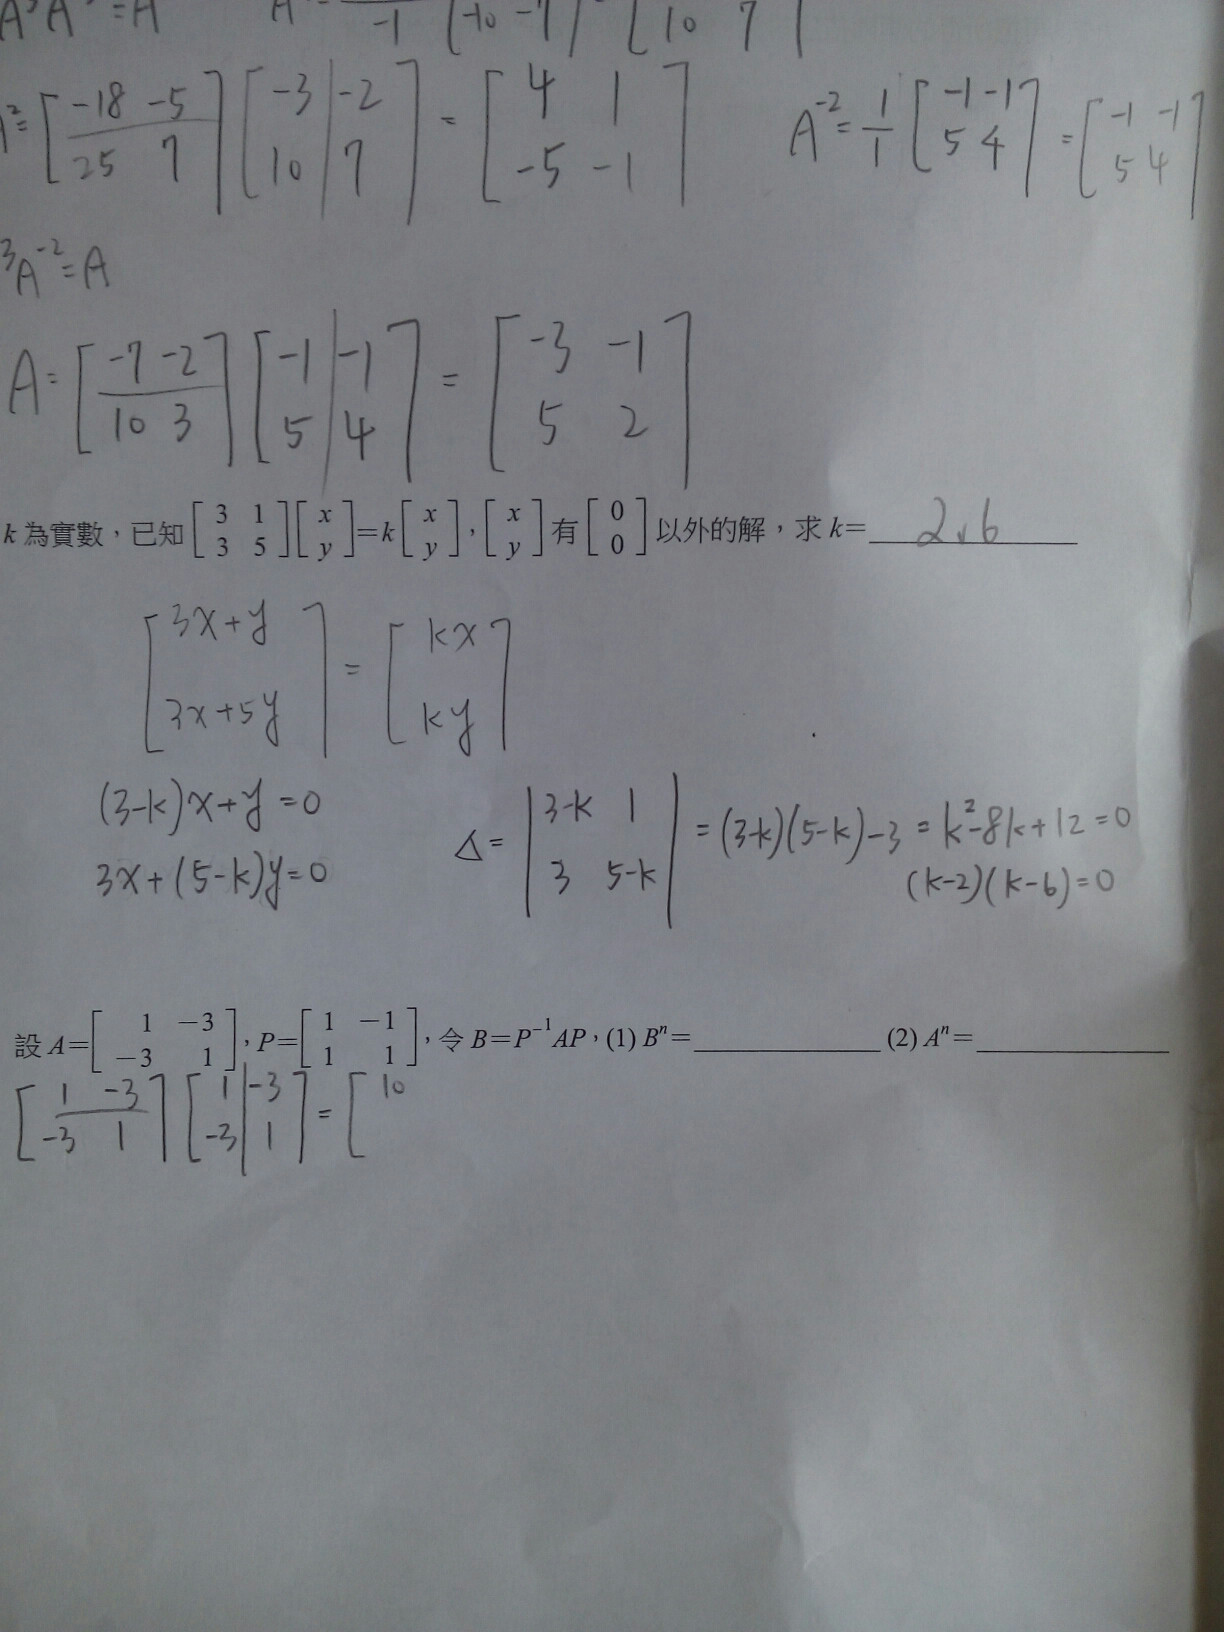 A³A = A
-1 [-10 -7] [10 7]
A²= [-18 -5 25 7] [-3 -2 10 7] = [4 1 -5 -1] A⁻²= 1/1 [-1 -1 5 4] = [-1 -1 5 4]
³A⁻²=A
A= [-7 -2 10 3] [-1 -1 5 4] = [-3 -1 5 2]
k 為實數，已知[3 1 3 5][x y]=k[x y]，[x y]有[0 0]以外的解，求 k= 2、6
[3x+y 3x+5y] = [kx ky]
(3-k)x+y=0
3x+(5-k)y=0
Δ= |3-k 1 3 5-k| = (3-k)(5-k)-3 = k²-8k+12=0
(k-2)(k-6)=0
設 A=[1 -3 -3 1]，P=[1 -1 1 1]，令 B=P⁻¹AP，(1) Bⁿ=____________ (2) Aⁿ=____________
[1 -3 -3 1] [1 -3 -3 1] = [10